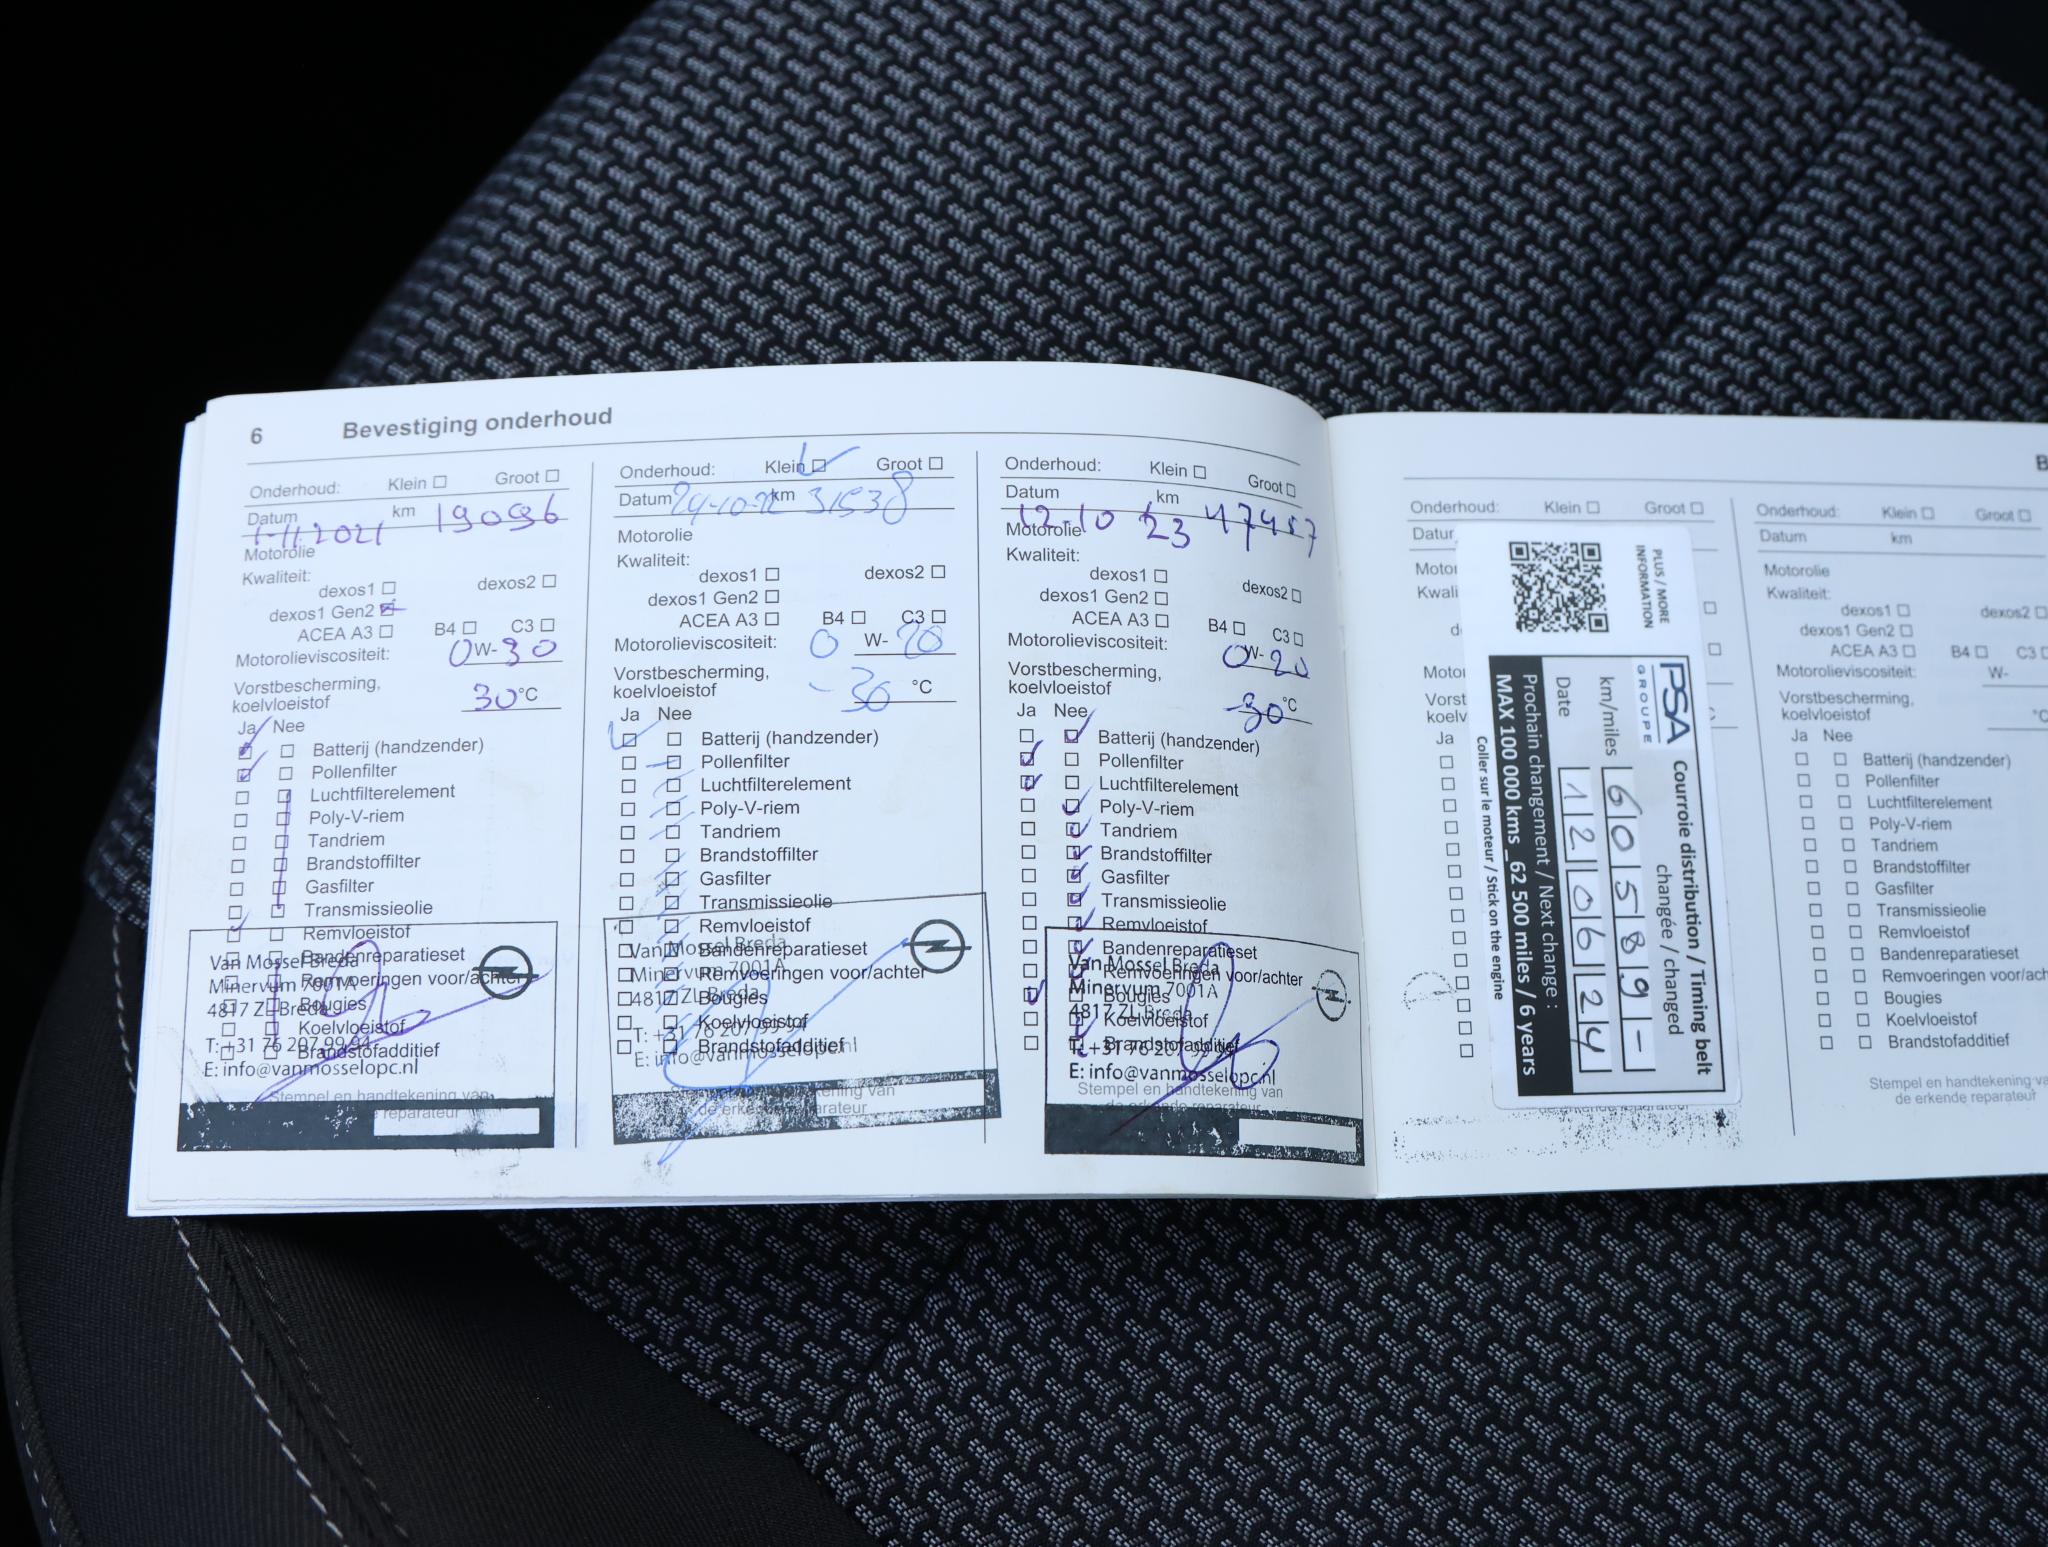 6 Bevestiging onderhoud
Onderhoud: Klein Groot
Datum km
1-11 2021 19096
Motorolie
Kwaliteit:
dexos1 dexos2
dexos1 Gen2
ACEA A3 B4 C3
Motorolieviscositeit: 0 W- 30
Vorstbescherming,
koelvloeistof 30 °C
Ja Nee
Batterij (handzender)
Pollenfilter
Luchtfilterelement
Poly-V-riem
Tandriem
Brandstoffilter
Gasfilter
Transmissieolie
Remvloeistof
Bandenreparatieset
Remvoeringen voor/achter
Bougies
Koelvloeistof
Brandstofadditief
Van Mossel Breda
Minervum 7001A
4817 ZL Breda
T: +31 76 207 99 94
E: info@vanmosselopc.nl
Stempel en handtekening van
reparateur
Onderhoud: Klein Groot
Datum 24-10-22 km 31538
Motorolie
Kwaliteit:
dexos1 dexos2
dexos1 Gen2
ACEA A3 B4 C3
Motorolieviscositeit: 0 W- 20
Vorstbescherming,
koelvloeistof -30 °C
Ja Nee
Batterij (handzender)
Pollenfilter
Luchtfilterelement
Poly-V-riem
Tandriem
Brandstoffilter
Gasfilter
Transmissieolie
Remvloeistof
Bandenreparatieset
Remvoeringen voor/achter
Bougies
Koelvloeistof
Brandstofadditief
Van Mossel Breda
Minervum 7001A
4817 ZL Breda
T: +31 76 207 99 94
E: info@vanmosselopc.nl
Stempel en handtekening van
de erkende reparateur
Onderhoud: Klein Groot
Datum km
12-10 23 47457
Motorolie
Kwaliteit:
dexos1 dexos2
dexos1 Gen2
ACEA A3 B4 C3
Motorolieviscositeit: 0 W- 20
Vorstbescherming,
koelvloeistof -30 °C
Ja Nee
Batterij (handzender)
Pollenfilter
Luchtfilterelement
Poly-V-riem
Tandriem
Brandstoffilter
Gasfilter
Transmissieolie
Remvloeistof
Bandenreparatieset
Remvoeringen voor/achter
Bougies
Koelvloeistof
Brandstofadditief
Van Mossel Breda
Minervum 7001A
4817 ZL Breda
T: +31 76 207 99 94
E: info@vanmosselopc.nl
Stempel en handtekening van
de erkende reparateur
Onderhoud: Klein Groot
Ja
PLUS / MORE
INFORMATION
PSA
GROUPE
Courroie distribution / Timing belt
changée / changed
km/miles 60589-
Date 120624
Prochain changement / Next change :
MAX 100 000 kms _62 500 miles / 6 years
Coller sur le moteur / Stick on the engine
Onderhoud: Klein Groot
Datum km
Motorolie
Kwaliteit:
dexos1 dexos2
dexos1 Gen2
ACEA A3 B4 C3
Motorolieviscositeit: W-
Vorstbescherming,
koelvloeistof °C
Ja Nee
Batterij (handzender)
Pollenfilter
Luchtfilterelement
Poly-V-riem
Tandriem
Brandstoffilter
Gasfilter
Transmissieolie
Remvloeistof
Bandenreparatieset
Remvoeringen voor/ach
Bougies
Koelvloeistof
Brandstofadditief
Stempel en handtekening va
de erkende reparateur